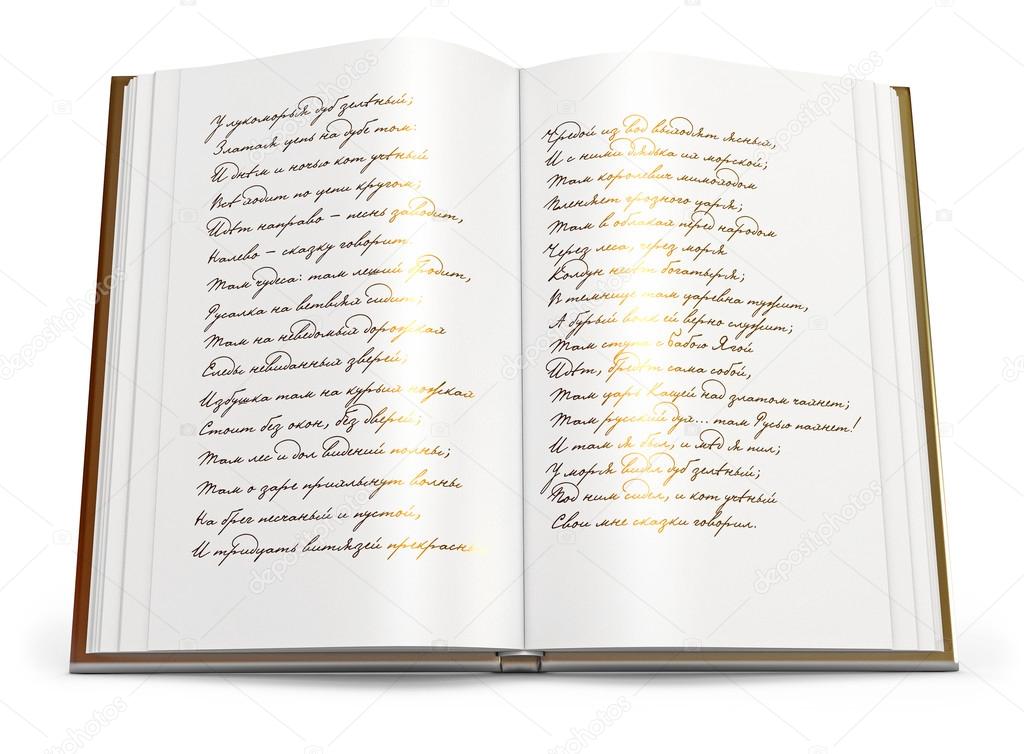 У лукоморья дуб зелёный;
Златая цепь на дубе том:
И днём и ночью кот учёный
Всё ходит по цепи кругом;
Идёт направо – песнь заводит,
Налево – сказку говорит.
Там чудеса: там леший бродит,
Русалка на ветвях сидит;
Там на неведомых дорожках
Следы невиданных зверей;
Избушка там на курьих ножках
Стоит без окон, без дверей;
Там лес и дол видений полны;
Там о заре прихлынут волны
На брег песчаный и пустой,
И тридцать витязей прекрасных
Чредой из вод выходят ясных,
И с ними дядька их морской;
Там королевич мимоходом
Пленяет грозного царя;
Там в облаках перед народом
Через леса, через моря
Колдун несёт богатыря;
В темнице там царевна тужит,
А бурый волк ей верно служит;
Там ступа с Бабою Ягой
Идёт, бредёт сама собой,
Там царь Кащей над златом чахнет;
Там русский дух... там Русью пахнет!
И там я был, и мёд я пил;
У моря видел дуб зелёный;
Под ним сидел, и кот учёный
Свои мне сказки говорил.
depositphotos